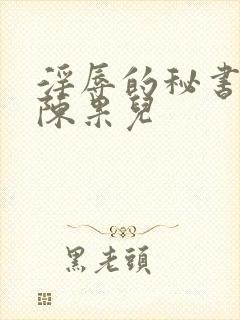 淫辱的秘書
陳果兒
黑老頭